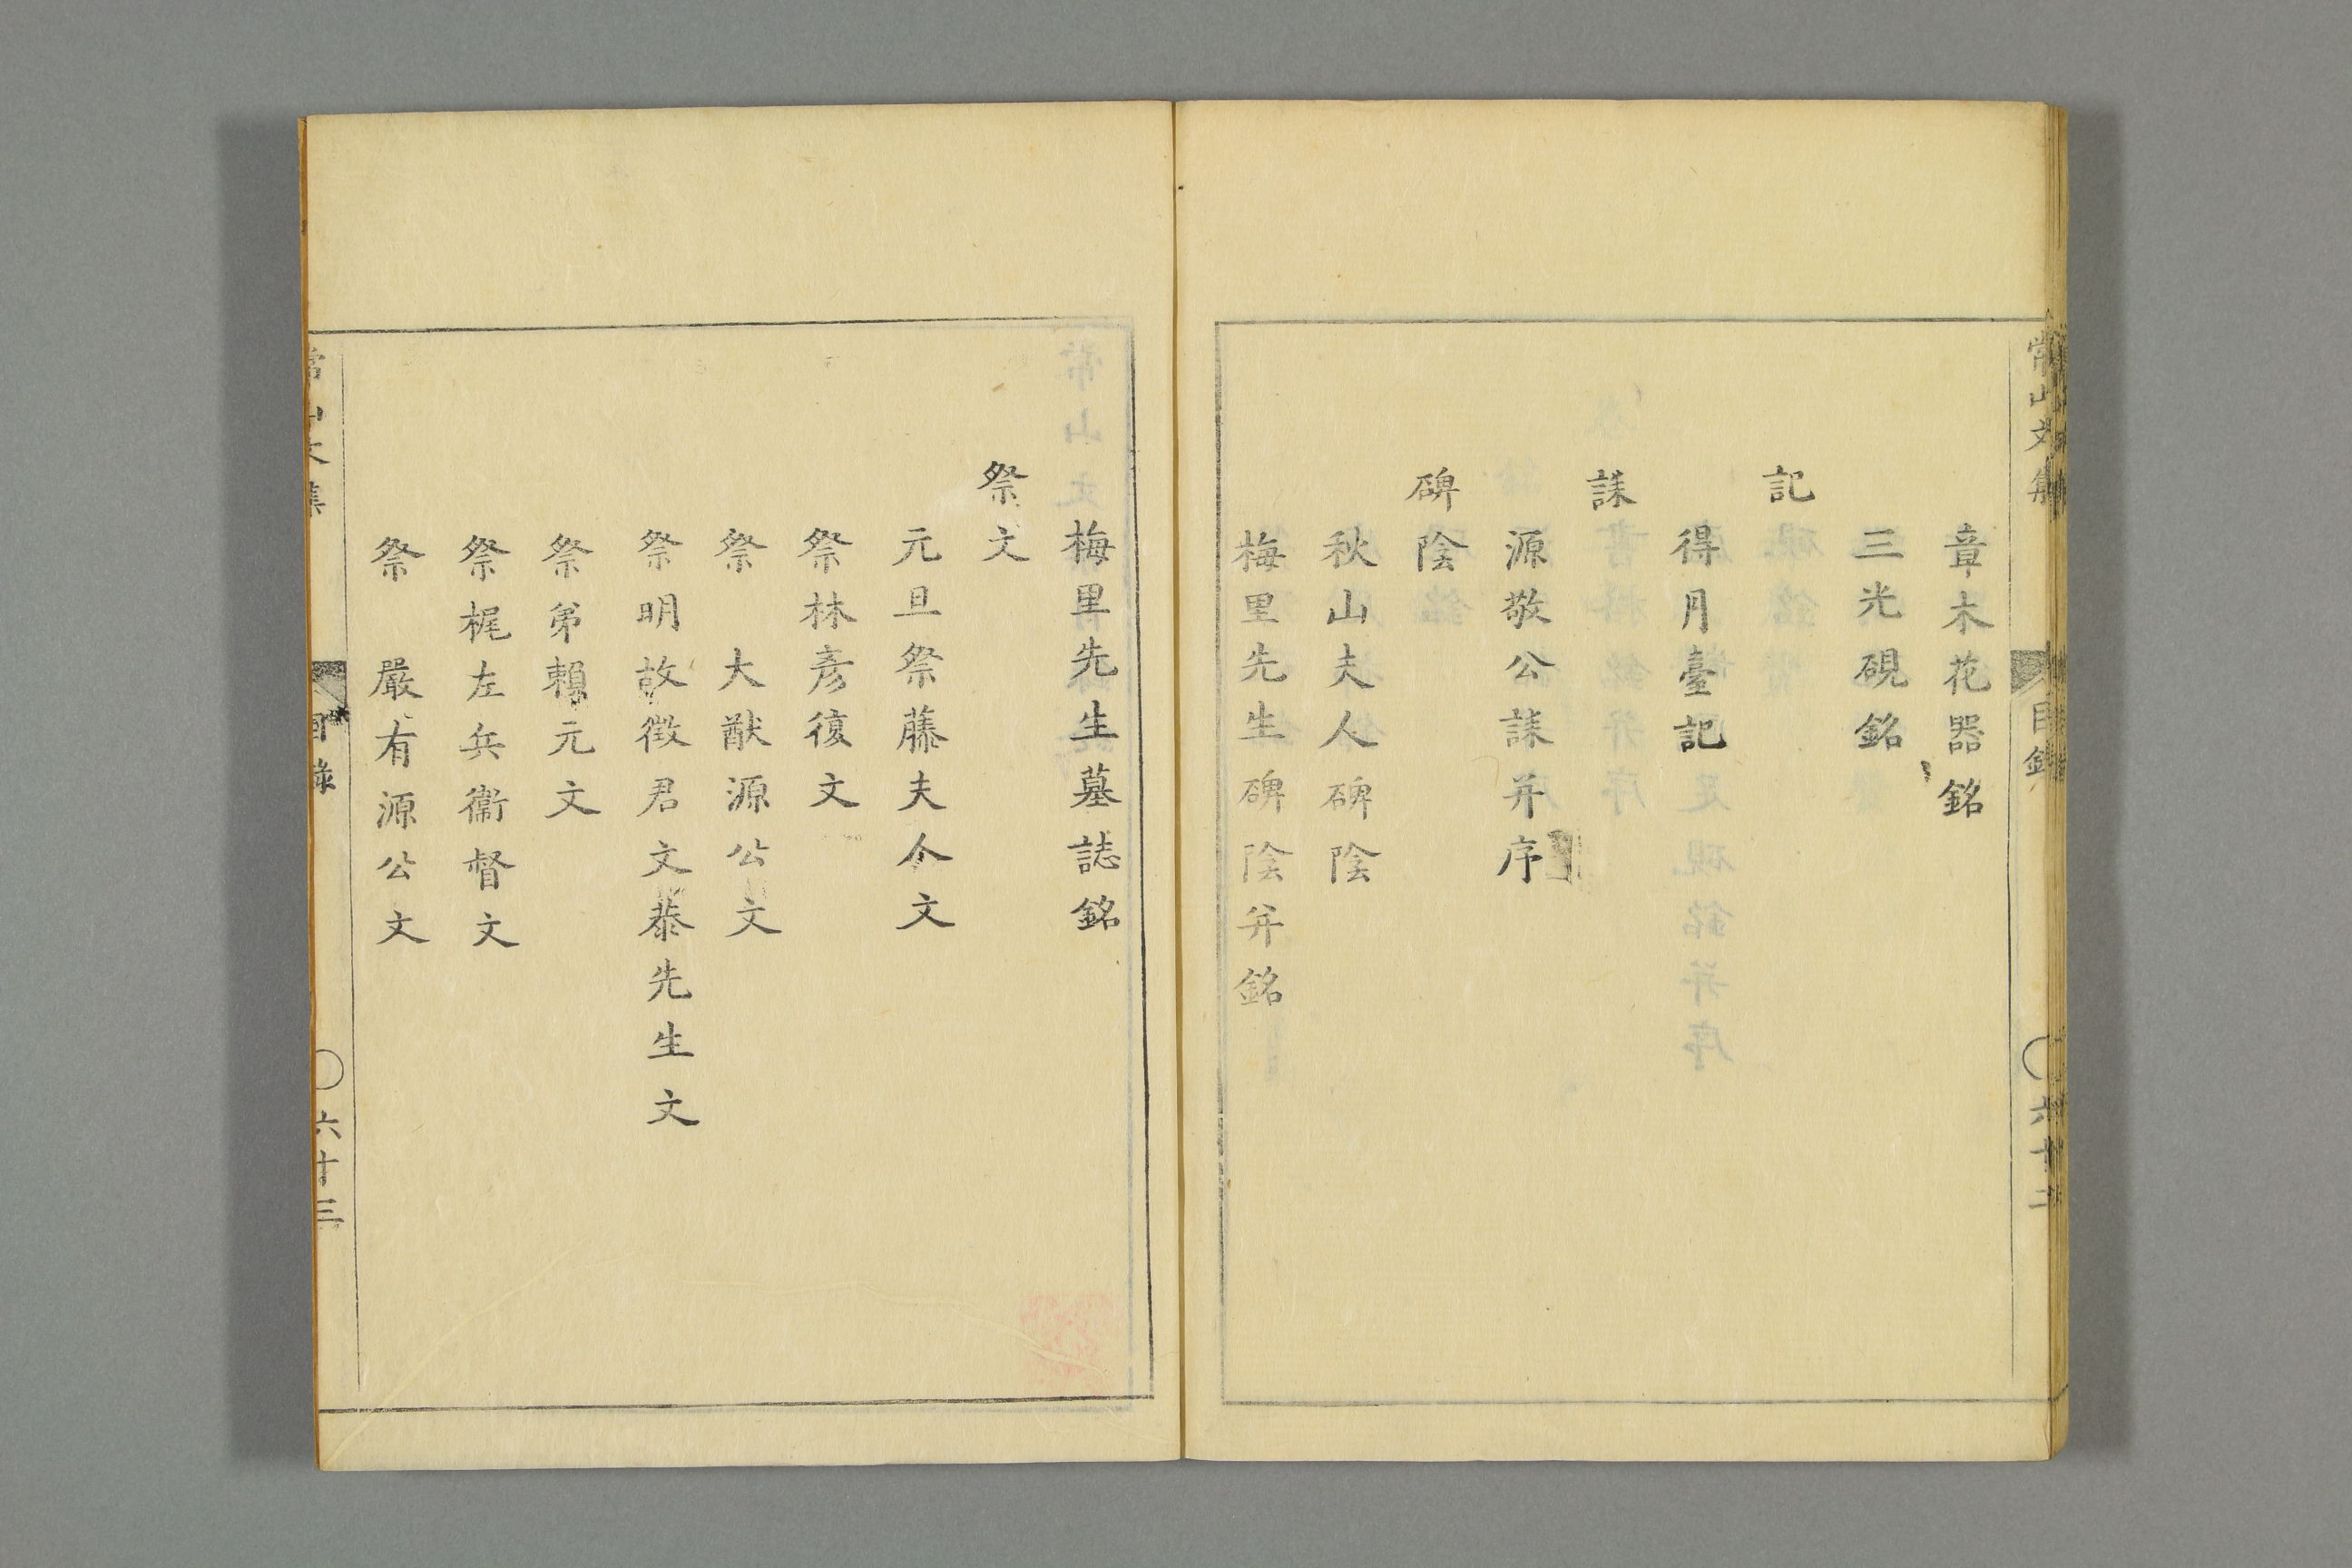 常山文集
目錄
六十二
章木花器銘
三光硯銘
記
得月臺記
誄
源敬公誄并序
碑陰
秋山夫人碑陰
梅里先生碑陰并銘
梅里先生墓誌銘
祭文
元旦祭藤夫人文
祭林彥復文
祭 大猷源公文
祭明故徵君文恭先生文
祭弟頼元文
祭梶左兵衞督文
祭 嚴有源公文
常山文集
目錄
六十三